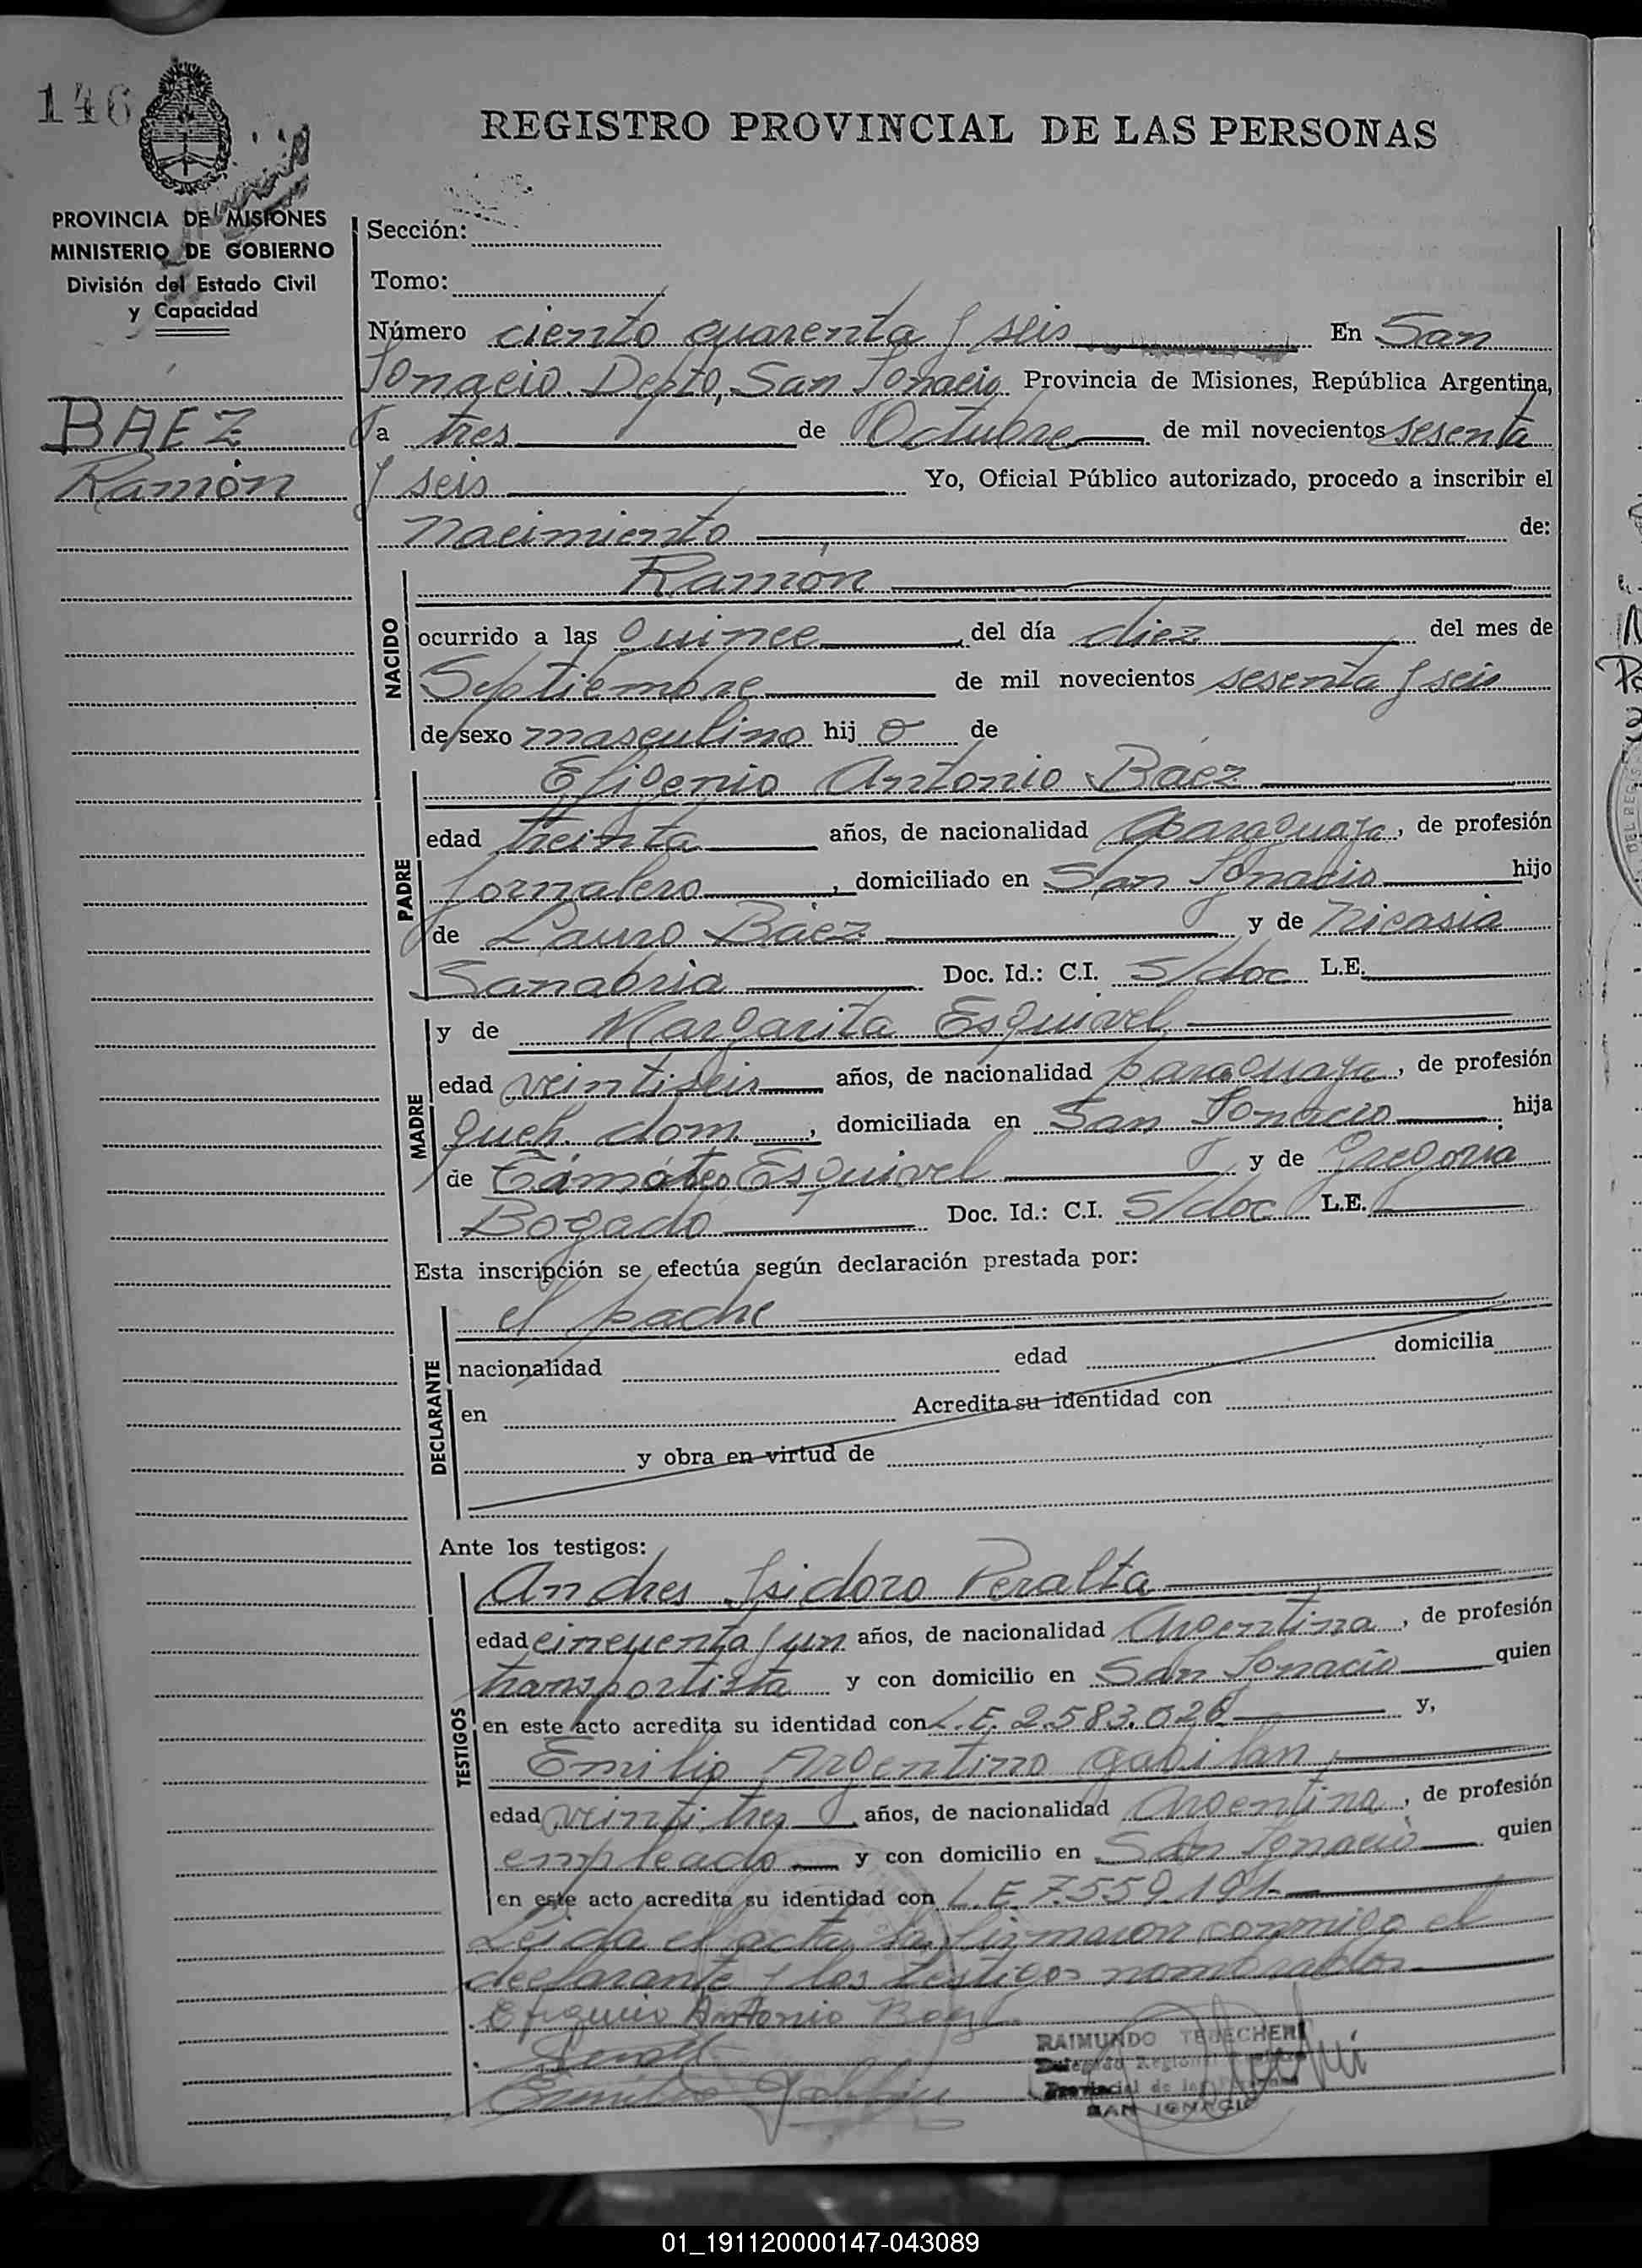 146
REGISTRO PROVINCIAL DE LAS PERSONAS
PROVINCIA DE MISIONES
MINISTERIO DE GOBIERNO
División del Estado Civil
y Capacidad
BAEZ
Ramón
Sección:
Tomo:
Número ciento cuarenta y seis En San
Ignacio Depto, San Ignacio Provincia de Misiones, República Argentina,
a tres de Octubre de mil novecientos sesenta
y seis Yo, Oficial Público autorizado, procedo a inscribir el
nacimiento de:
NACIDO
Ramón
ocurrido a las quince del día diez del mes de
Septiembre de mil novecientos sesenta y seis
de sexo masculino hij o de
PADRE
Efigenio Antonio Báez
edad treinta años, de nacionalidad paraguaya, de profesión
jornalero, domiciliado en San Ignacio hijo
de Lauro Báez y de Nicasia
Sanabria Doc. Id.: C.I. S/doc L.E.
MADRE
y de Margarita Esquivel
edad veintiseis años, de nacionalidad paraguaya, de profesión
queh. dom., domiciliada en San Ignacio hija
de Timóteo Esquivel y de Gregoria
Bogado Doc. Id.: C.I. S/doc L.E.
Esta inscripción se efectúa según declaración prestada por:
DECLARANTE
el padre
nacionalidad edad domicilia
en Acredita su identidad con
y obra en virtud de
Ante los testigos:
TESTIGOS
Andres Isidoro Peralta
edad cincuenta y un años, de nacionalidad Argentina, de profesión
transportista y con domicilio en San Ignacio quien
en este acto acredita su identidad con L.E. 2.583.026 y,
Emilio Argentino Gabilan
edad veintitres años, de nacionalidad Argentina, de profesión
empleado y con domicilio en San Ignacio quien
en este acto acredita su identidad con L.E. 7.559.191
Leida el acta, la firmaron conmigo el
declarante y los testigos nombrados
Efigenio Antonio Baez
RAIMUNDO TEJECHERI
Delegado Regional
Provincial de las Personas
SAN IGNACIO
01_191120000147-043089